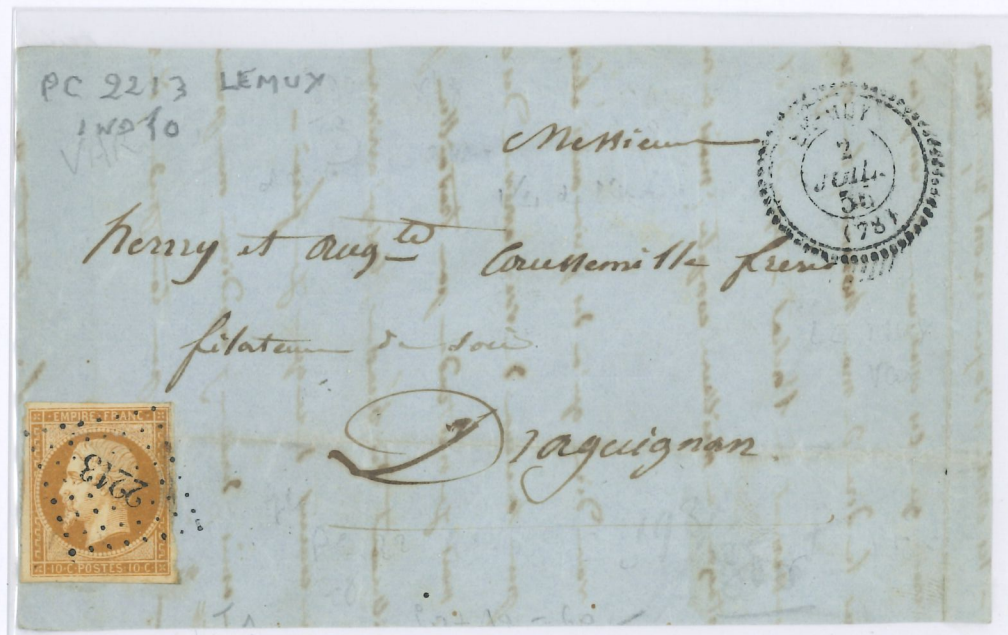 PC 2213 LEMUY
IND 10
VAR
LE-MUY
2
JUIL.
56
(78)
Messieurs
henry et Aug^te Coussemille freres
filateurs de soie
Draguignan
EMPIRE FRANC
2213
10·C·POSTES·10·C